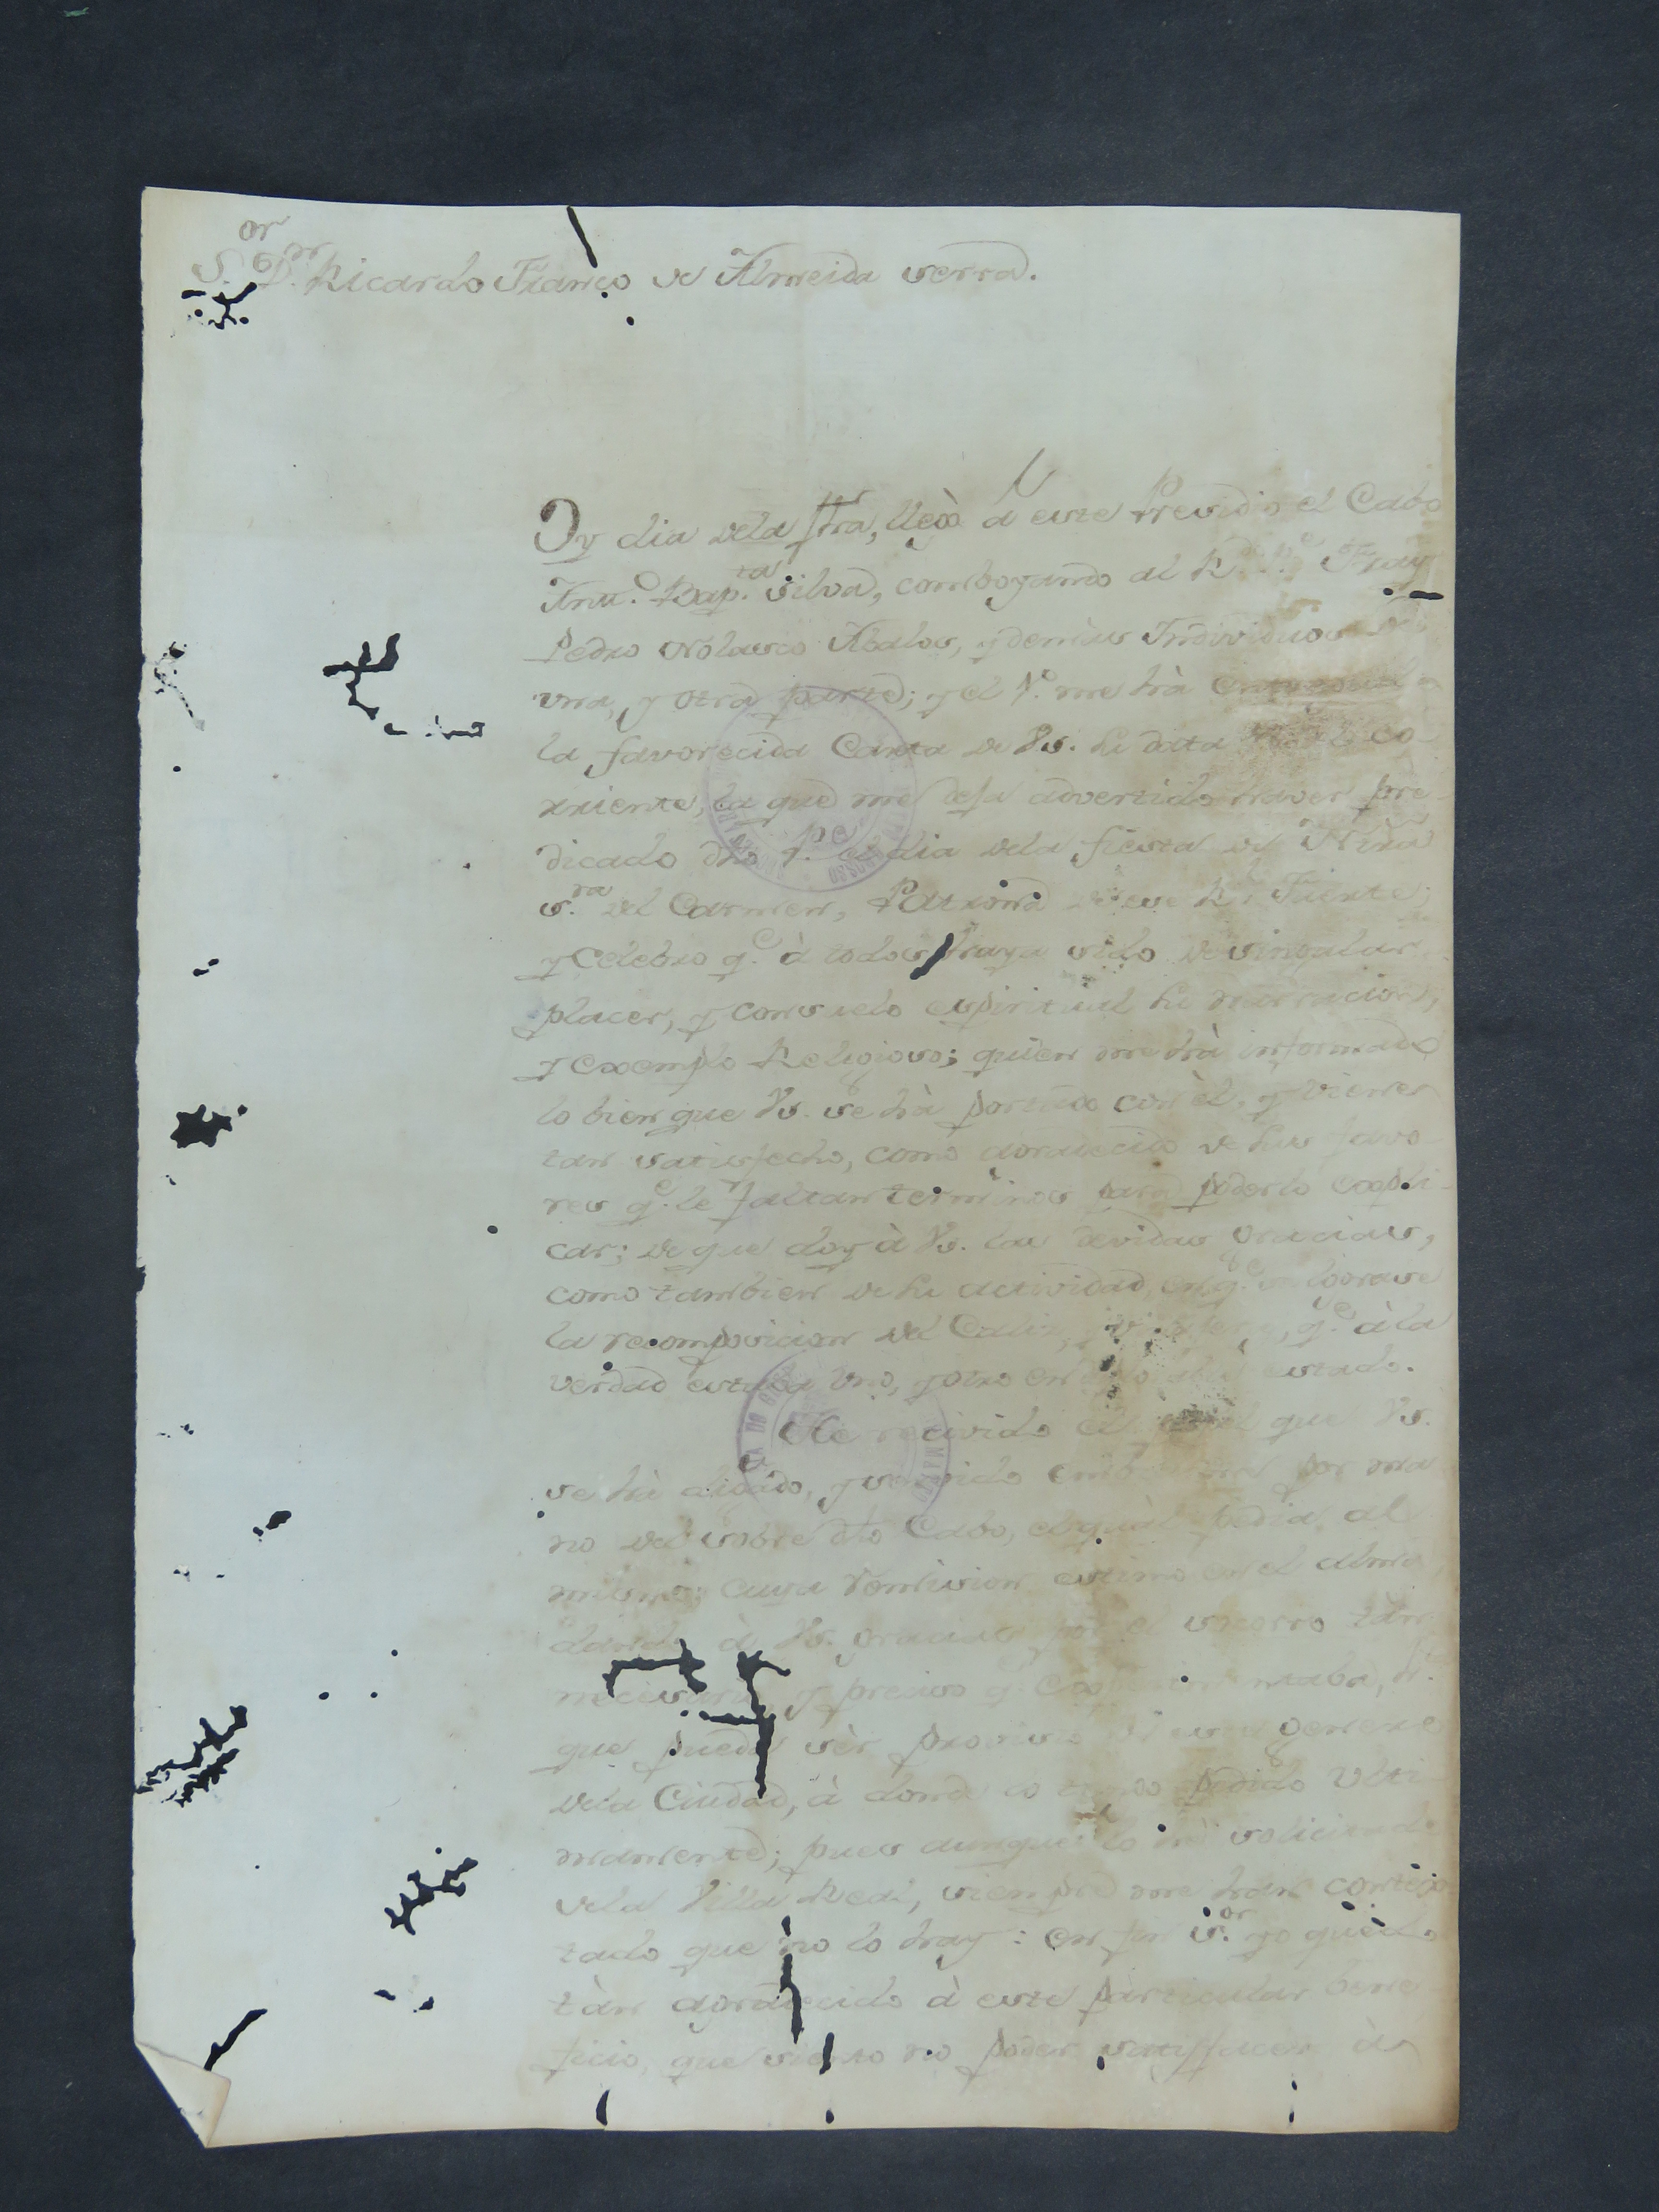 S.or D.n Ricardo Franco de Almeida serra.
Oy dia dela fha, llegò à este Presidio el Cabo
Ant.o Bap.ta Silva, comboyando al R.do P.e Fray
Pedro Nolasco Abalos, y demàs Individuos de
una, y otra parte; y el 1.o me hà entregado
la favorecida Carta de Vs. su data co-
rriente, la que me deja advertido haver pre-
dicado dho P.e el dia dela fiesta de Nrã
s.ra del Carmen, Patrona de ese R.l Fuerte;
y celebro q.e à todos haya sido de singular
placer, y consuelo espiritual su narracion,
y exemplo Religioso; quien me hà informado
lo bien que Vs. se hà portado con èl, y viene
tan satisfecho, como agradecido de sus favo-
res q.e le faltan terminos para poderlo expli-
car; de que doy à Vs. las devidas gracias,
como tambien de su actividad, en q.e se lograse
la recomposicion del Caliz, q.e à la
verdad estaba uno, y otro en estado.
He recivido el que Vs.
se hà dignado, y servido por ma-
no del sobre dho Cabo, el qual pedia al
mismo; cuya remision estimo en el alma
dando à Vs. gracias por el socorro tan
necesario, y preciso q.e
que pueda sèr provisto de este genero
dela Ciudad, à donde lo tengo pedido Ulti-
mamente; pues aunque lo hè solicitado
dela Villa Real, siempre me han contes-
tado que no lo hay: en fin s.or yo quedo
tàn agradecido à este particular bene-
ficio, que siento no poder satisfacer à